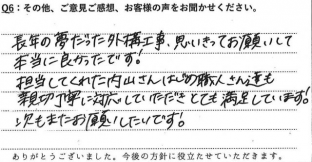 Q6：その他、ご意見ご感想、お客様の声をお聞かせください。
長年の夢だった外構工事、思いきってお願いして
本当に良かったです！
担当してくれた内山さんはじめ職人さん達も
親切丁寧に対応していただきとても満足しています！
次もまたお願いしたいです！
ありがとうございました。今後の方針に役立たせていただきます。